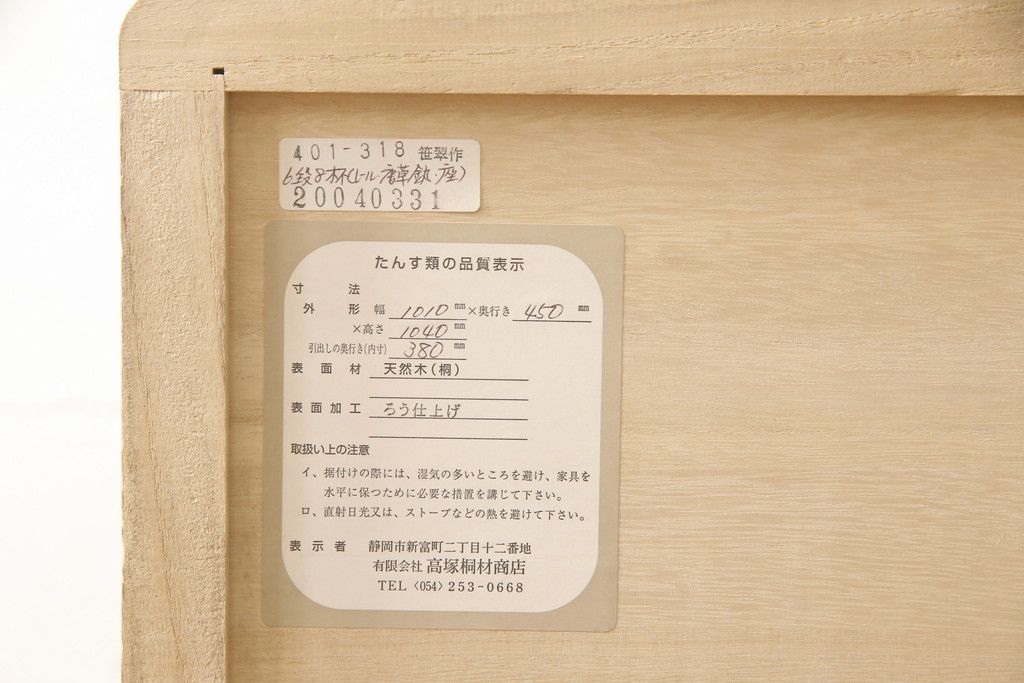 401-318 笹翠作
6段8杯(レール・唐草釻・座)
20040331
たんす類の品質表示
寸法
外形 幅 1010 mm ×奥行き 450 mm
×高さ 1040 mm
引出しの奥行き(内寸) 380 mm
表面材 天然木(桐)
表面加工 ろう仕上げ
取扱い上の注意
イ、据付けの際には、湿気の多いところを避け、家具を
水平に保つために必要な措置を講じて下さい。
ロ、直射日光又は、ストーブなどの熱を避けて下さい。
表示者 静岡市新富町二丁目十二番地
有限会社 高塚桐材商店
TEL〈054〉253-0668